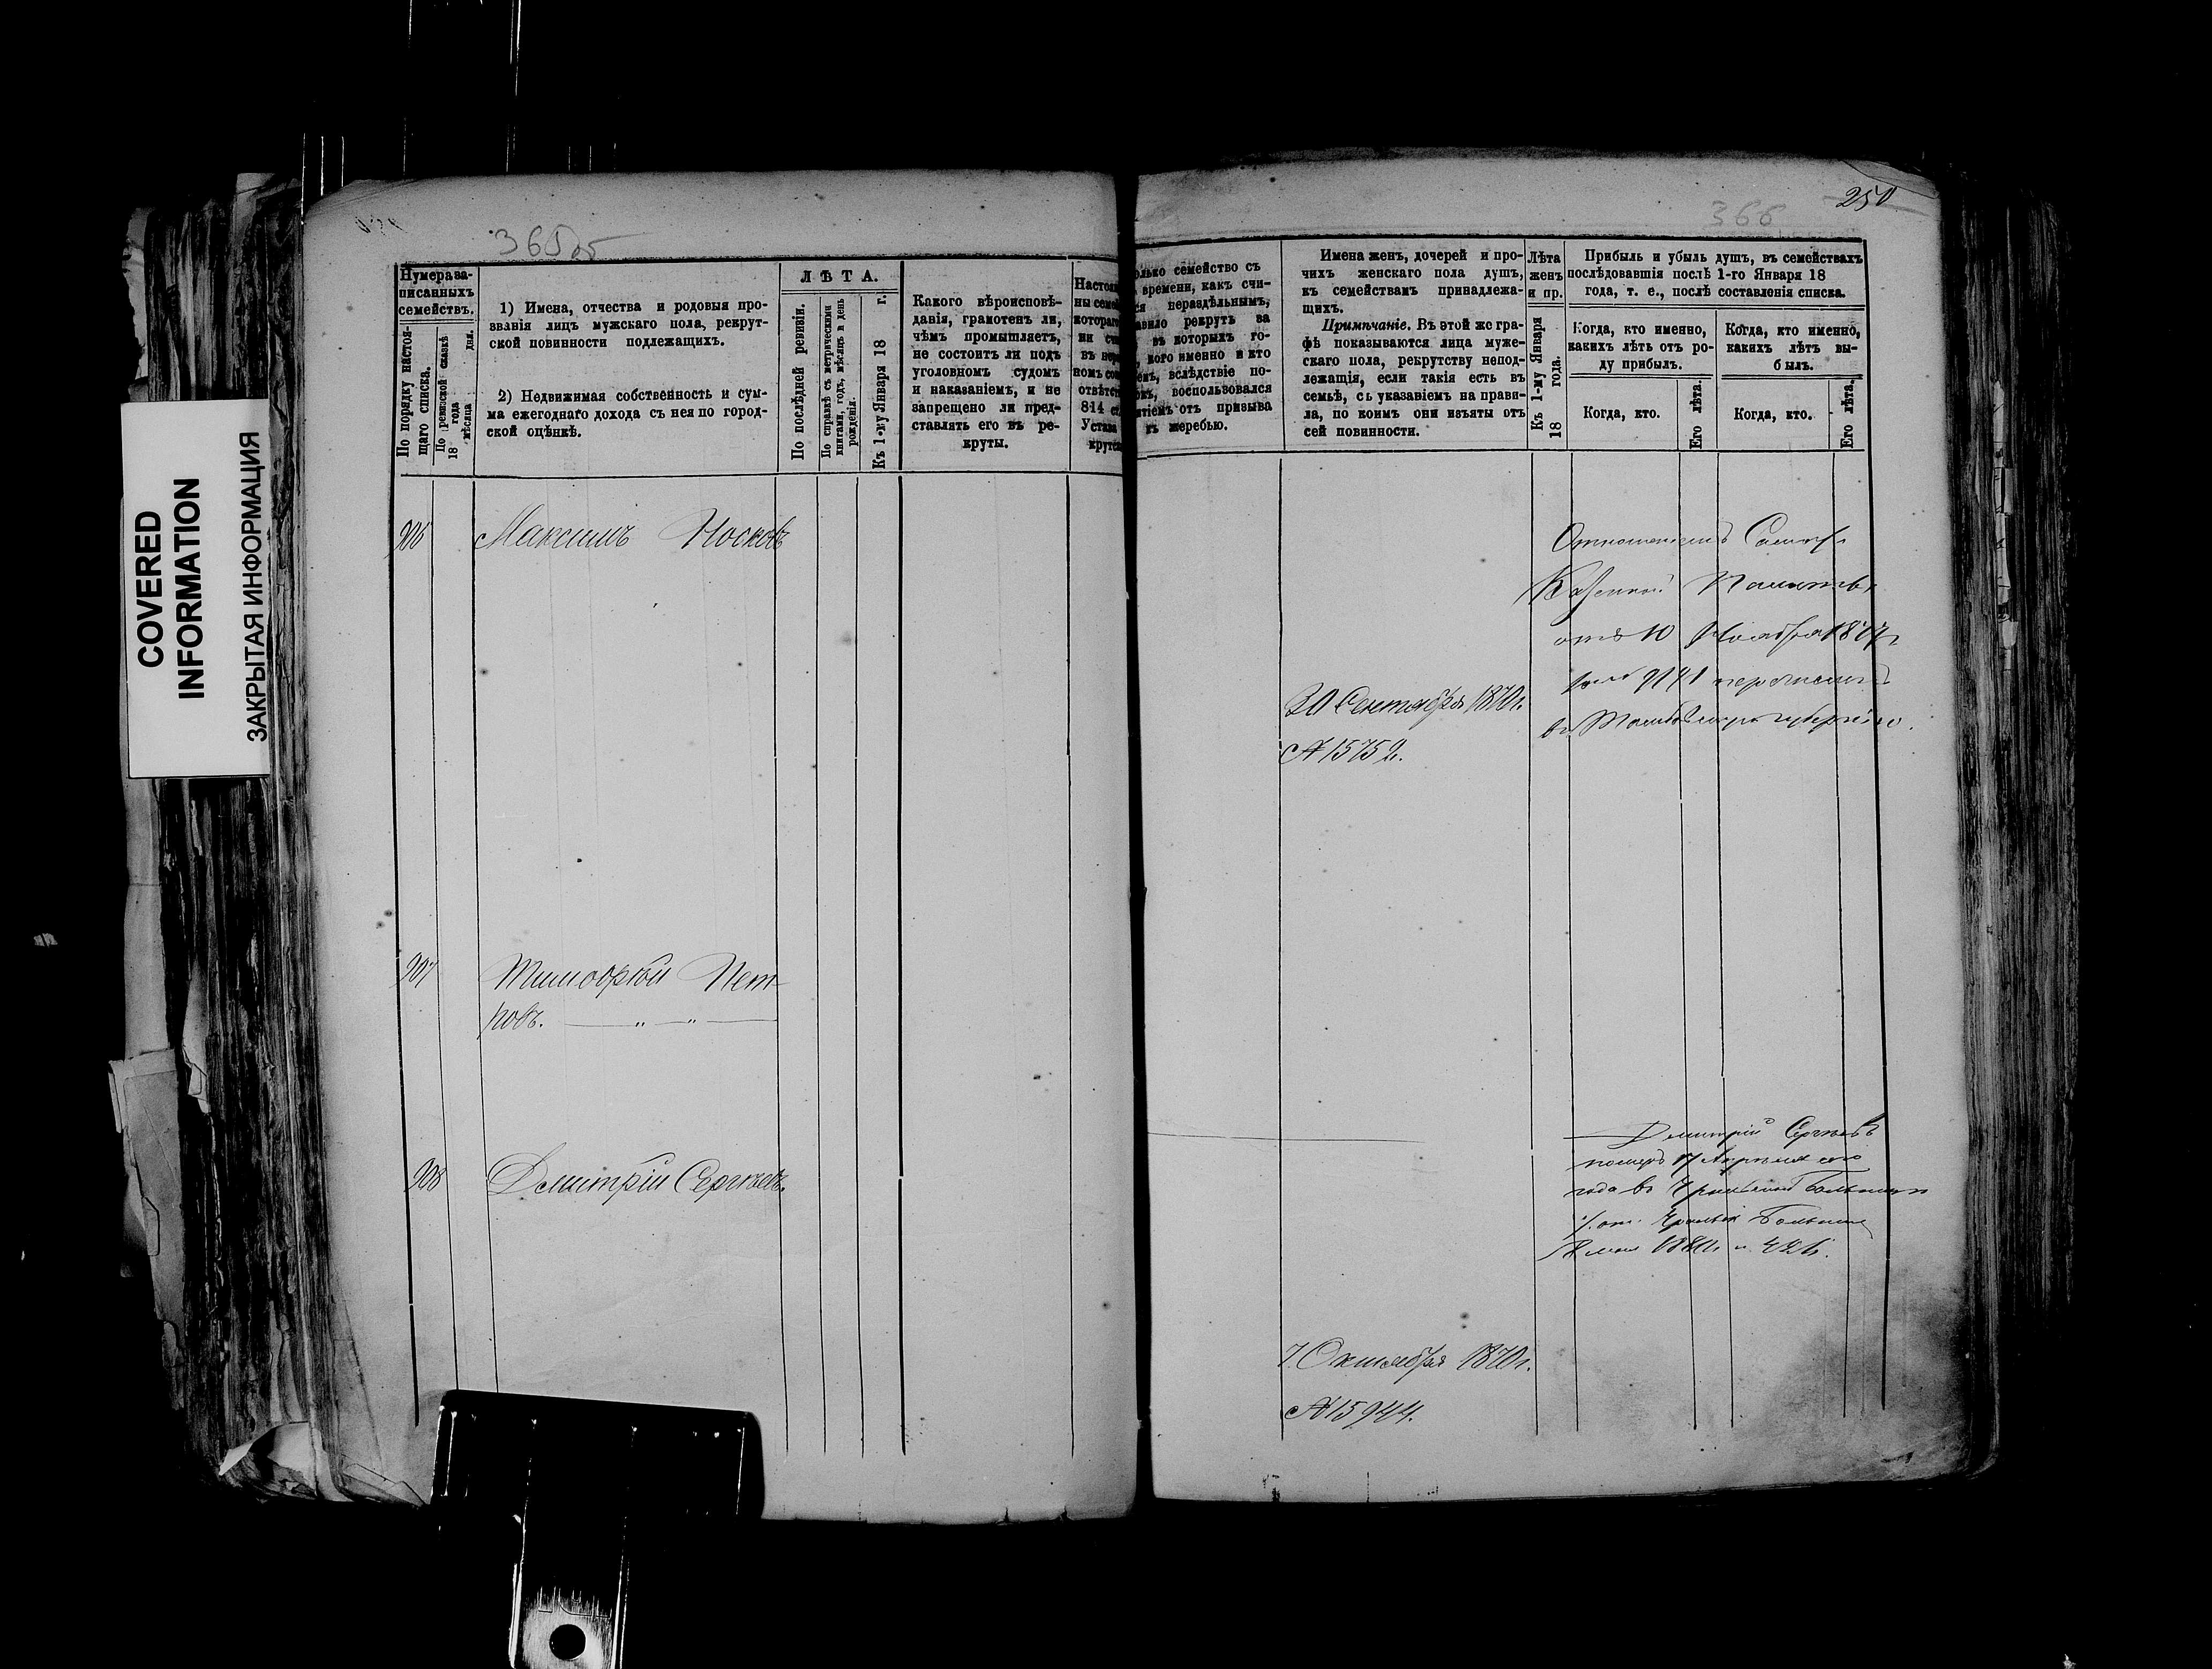 COVERED
INFORMATION
ЗАКРЫТАЯ ИНФОРМАЦИЯ
365об
Нумера за-
писанныхъ
семействъ.
По порядку настоя-
щаго списка.
По ревизской сказкѣ
18 года
мѣсяца дня.
1) Имена, отчества и родовыя про-
званія лицъ мужскаго пола, рекрут-
ской повинности подлежащихъ.
2) Недвижимая собственность и сум-
ма ежегоднаго дохода съ нея по город-
ской оцѣнкѣ.
ЛѢТА.
По послѣдней ревизіи.
По справкѣ съ метрическими
книгами, годъ, мѣсяцъ и день
рожденія.
Къ 1-му Января 18 г.
Какого вѣроисповѣ-
данія, грамотенъ ли,
чѣмъ промышляетъ,
не состоитъ ли подъ
уголовномъ судомъ
и наказаніемъ, и не
запрещено ли пред-
ставлять его въ ре-
круты.
906 Максимъ Носковъ
907 Тимофѣй Пет-
ровъ.
908 Дмитрій Сергѣевъ.
250
366
семейство съ
времени, какъ счи-
нераздѣльнымъ,
рекрутъ за
въ которыхъ го-
кого именно и кто
вслѣдствіе по-
воспользовался
отъ призыва
жеребью.
Имена женъ, дочерей и про-
чихъ женскаго пола душъ,
къ семействамъ принадлежа-
щихъ.
Примѣчаніе. Въ этой же гра-
фѣ показываются лица муже-
скаго пола, рекрутству непод-
лежащія, если такія есть въ
семьѣ, съ указаніемъ на прави-
ла, по коимъ они изъяты отъ
сей повинности.
Лѣта
женъ
и пр.
Къ 1-му Января
18 года.
Прибыль и убыль душъ, въ семействахъ
послѣдовавшія послѣ 1-го Января 18
года, т. е., послѣ составленія списка.
Когда, кто именно,
какихъ лѣтъ отъ ро-
ду прибылъ.
Когда, кто именно,
какихъ лѣтъ вы-
былъ.
Когда, кто.
Его лѣта.
Когда, кто.
Его лѣта.
Отношеніемъ
Казенной Палаты
отъ 10 Ноября
перечисленъ
губернію.
30 Сентября 1870г.
№ 15752.
Дмитрій Сергѣевъ
померъ 17 Апрѣля сего
года въ
7 Октября 1870г.
№ 15944.